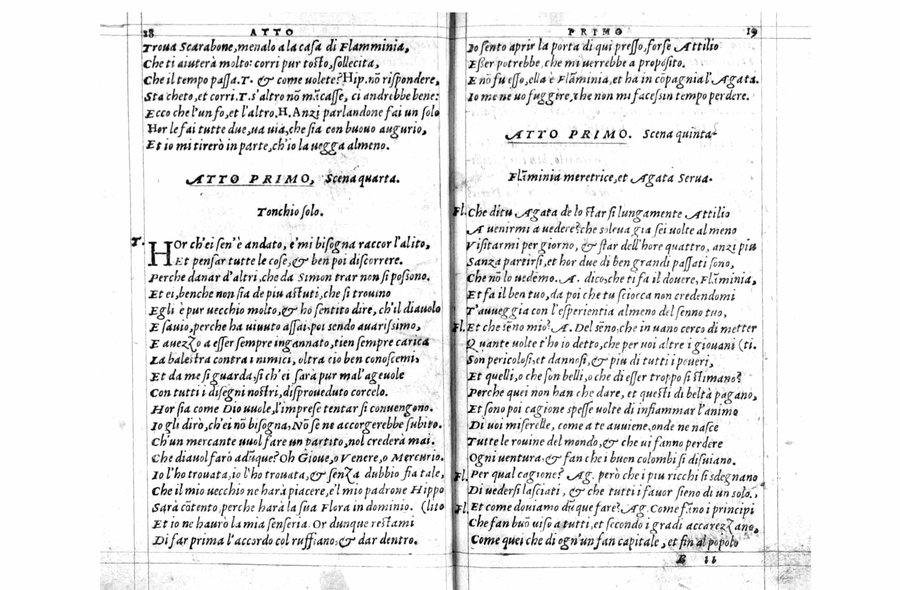 28 ATTO
Troua Scarabone, menalo a la casa di Flamminia,
Che ti aiuterà molto: corri pur tosto, sollecita,
Che il tempo passa. T. & come uolete? Hip. nõ rispondere,
Sta cheto, et corri. T. s'altro nõ mãcasse, ci andrebbe bene:
Ecco che l'un fo, et l'altro. H. Anzi parlandone fai un solo
Hor le fai tutte due, ua uia, che sia con buouo augurio,
Et io mi tirerò in parte, ch'io la uegga almeno.
ATTO PRIMO, Scena quarta.
Tonchio solo.
T. Hor ch'ei sen'è andato, e'mi bisogna raccor l'alito,
Et pensar tutte le cose, & ben poi discorrere.
Perche danar d'altri, che da Simon trar non si possono.
Et ei, benche non sia de piu astuti, che si trouino
Egli è pur uecchio molto, & ho sentito dire, ch'il diauolo
E sauio, perche ha uiuuto assai: poi sendo auarissimo,
E auezzo a esser sempre ingannato, tien sempre carica
La balestra contra i nimici, oltra cio ben conoscemi,
Et da me si guarda, si ch'ei sarà pur mal'ageuole
Con tutti i disegni nostri, disproueduto corcelo.
Hor sia come Dio uuole, l'imprese tentar si conuengono.
Io gli dirò, ch'ei nõ bisogna, Nõ se ne accorgerebbe subito.
Ch'un mercante uuol fare un partito, nol crederà mai.
Che diauol farò adũque? Oh Gioue, o Venere, o Mercurio.
Io l'ho trouata, io l'ho trouata, & senza dubbio fia tale,
Che il mio uecchio ne harà piacere, e'l mio padrone Hippo
Sarà cõtento, perche harà la sua Flora in dominio. (lito
Et io ne haurò la mia senseria. Or dunque restami
Di far prima l'accordo col ruffiano, & dar dentro.
PRIMO 29
Io sento aprir la porta di qui presso, forse Attilio
Esser potrebbe, che mi uerrebbe a proposito.
E nõ fu esso, ella è Flãminia, et ha in cõpagnia l'Agata.
Io me ne uo fuggire, che non mi facessin tempo perdere.
ATTO PRIMO. Scena quinta.
Flãminia meretrice, et Agata Serua.
Fl. Che di tu, Agata de lo star si lungamente Attilio
A uenirmi a uedere? che soleua gia sei uolte al meno
Visitarmi per giorno, & star dell'hore quattro, anzi piu
Sanza partirsi, et hor due di ben grandi passati sono,
Che nõ lo uedemo. A. dico, che ti fa il douere, Flãminia,
Et fa il ben tuo, da poi che tu sciocca non credendomi
T'auueggia con l'esperientia almeno del senno tuo,
Fl. Et che sẽno mio? A. Del sẽno, che in uano cerco di metter
Quante uolte t'ho io detto, che per uoi altre i giouani (ti.
Son pericolosi, et dannosi, & piu di tutti i poueri,
Et quelli, o che son belli, o che di esser troppo si stimano?
Perche quei non han che dare, et questi di beltà pagano,
Et sono poi cagione spesse uolte di infiammar l'animo
Di uoi miserelle, come a te auuiene, onde ne nasce
Tutte le rouine del mondo, & che ui fanno perdere
Ogni uentura, & fan che i buen colombi si disuiano.
Fl. Per qual cagione? Ag. però che i piu ricchi si sdegnano
Di uedersi lasciati, & che tutti i fauor sieno di un solo.
Fl. Et come douiamo dũque fare? Ag. Come fãno i principi
Che fan buõ uiso a tutti, et secondo i gradi accarezzano.
Come quei che di ogn'un fan capitale, et fin al popolo
B ii